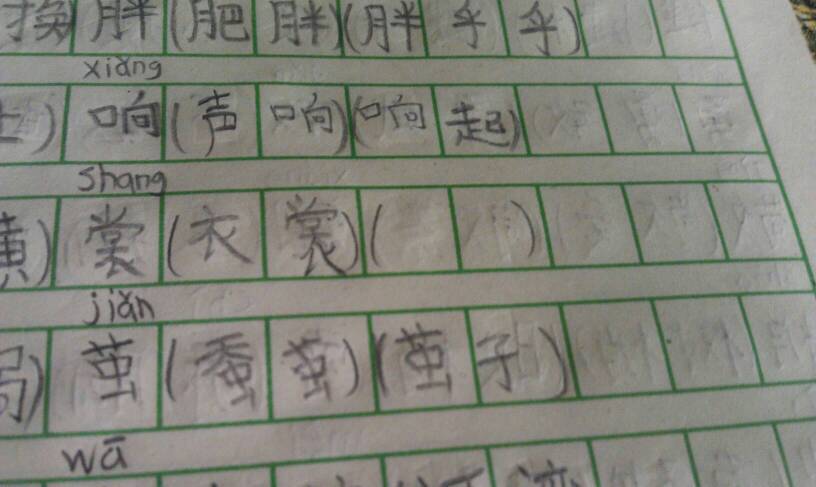 换 胖(肥胖)(胖乎乎)
xiǎng
响(声响)(响起)
shang
裳(衣裳)( )
jiǎn
茧(蚕茧)(茧子)
wā